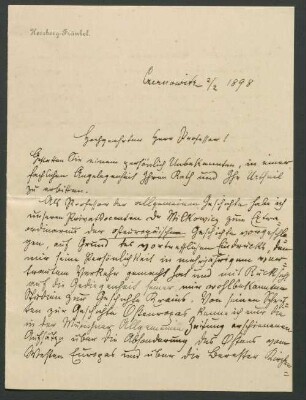 Herzberg-Fränkel
Czernowitz 2/2 1898
Hochgeehrter Herr Professor!
Gestatten Sie einem persönlich Unbekannten, in einer
fachlichen Angelegenheit Ihren Rath und Ihr Urtheil
zu erbitten.
Als Professor der allgemeinen Geschichte habe ich
unseren Privatdocenten Dr Milkowicz zum Extra-
ordinarius der osteuropäischen Geschichte vorgeschla-
gen, auf Grund des vortrefflichen Eindrucks, den
mir seine Persönlichkeit in mehrjährigem
Verkehr gemacht hat und mit Rücksicht
auf die Gediegenheit seiner, mir wohlbekannten
Studien zur Geschichte Krains. Von seinen Schrif-
ten zur Geschichte Osteuropas kenne ich nur die
in der Münchner Allgemeinen Zeitung erschienenen
Aufsätze über die Absonderung des Ostens vom
Westen Europas und über die Brester Kirchen-